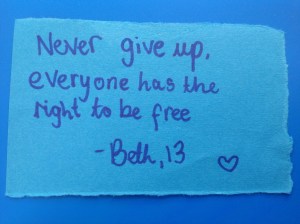 Never give up,
everyone has the
right to be free
-Beth, 13